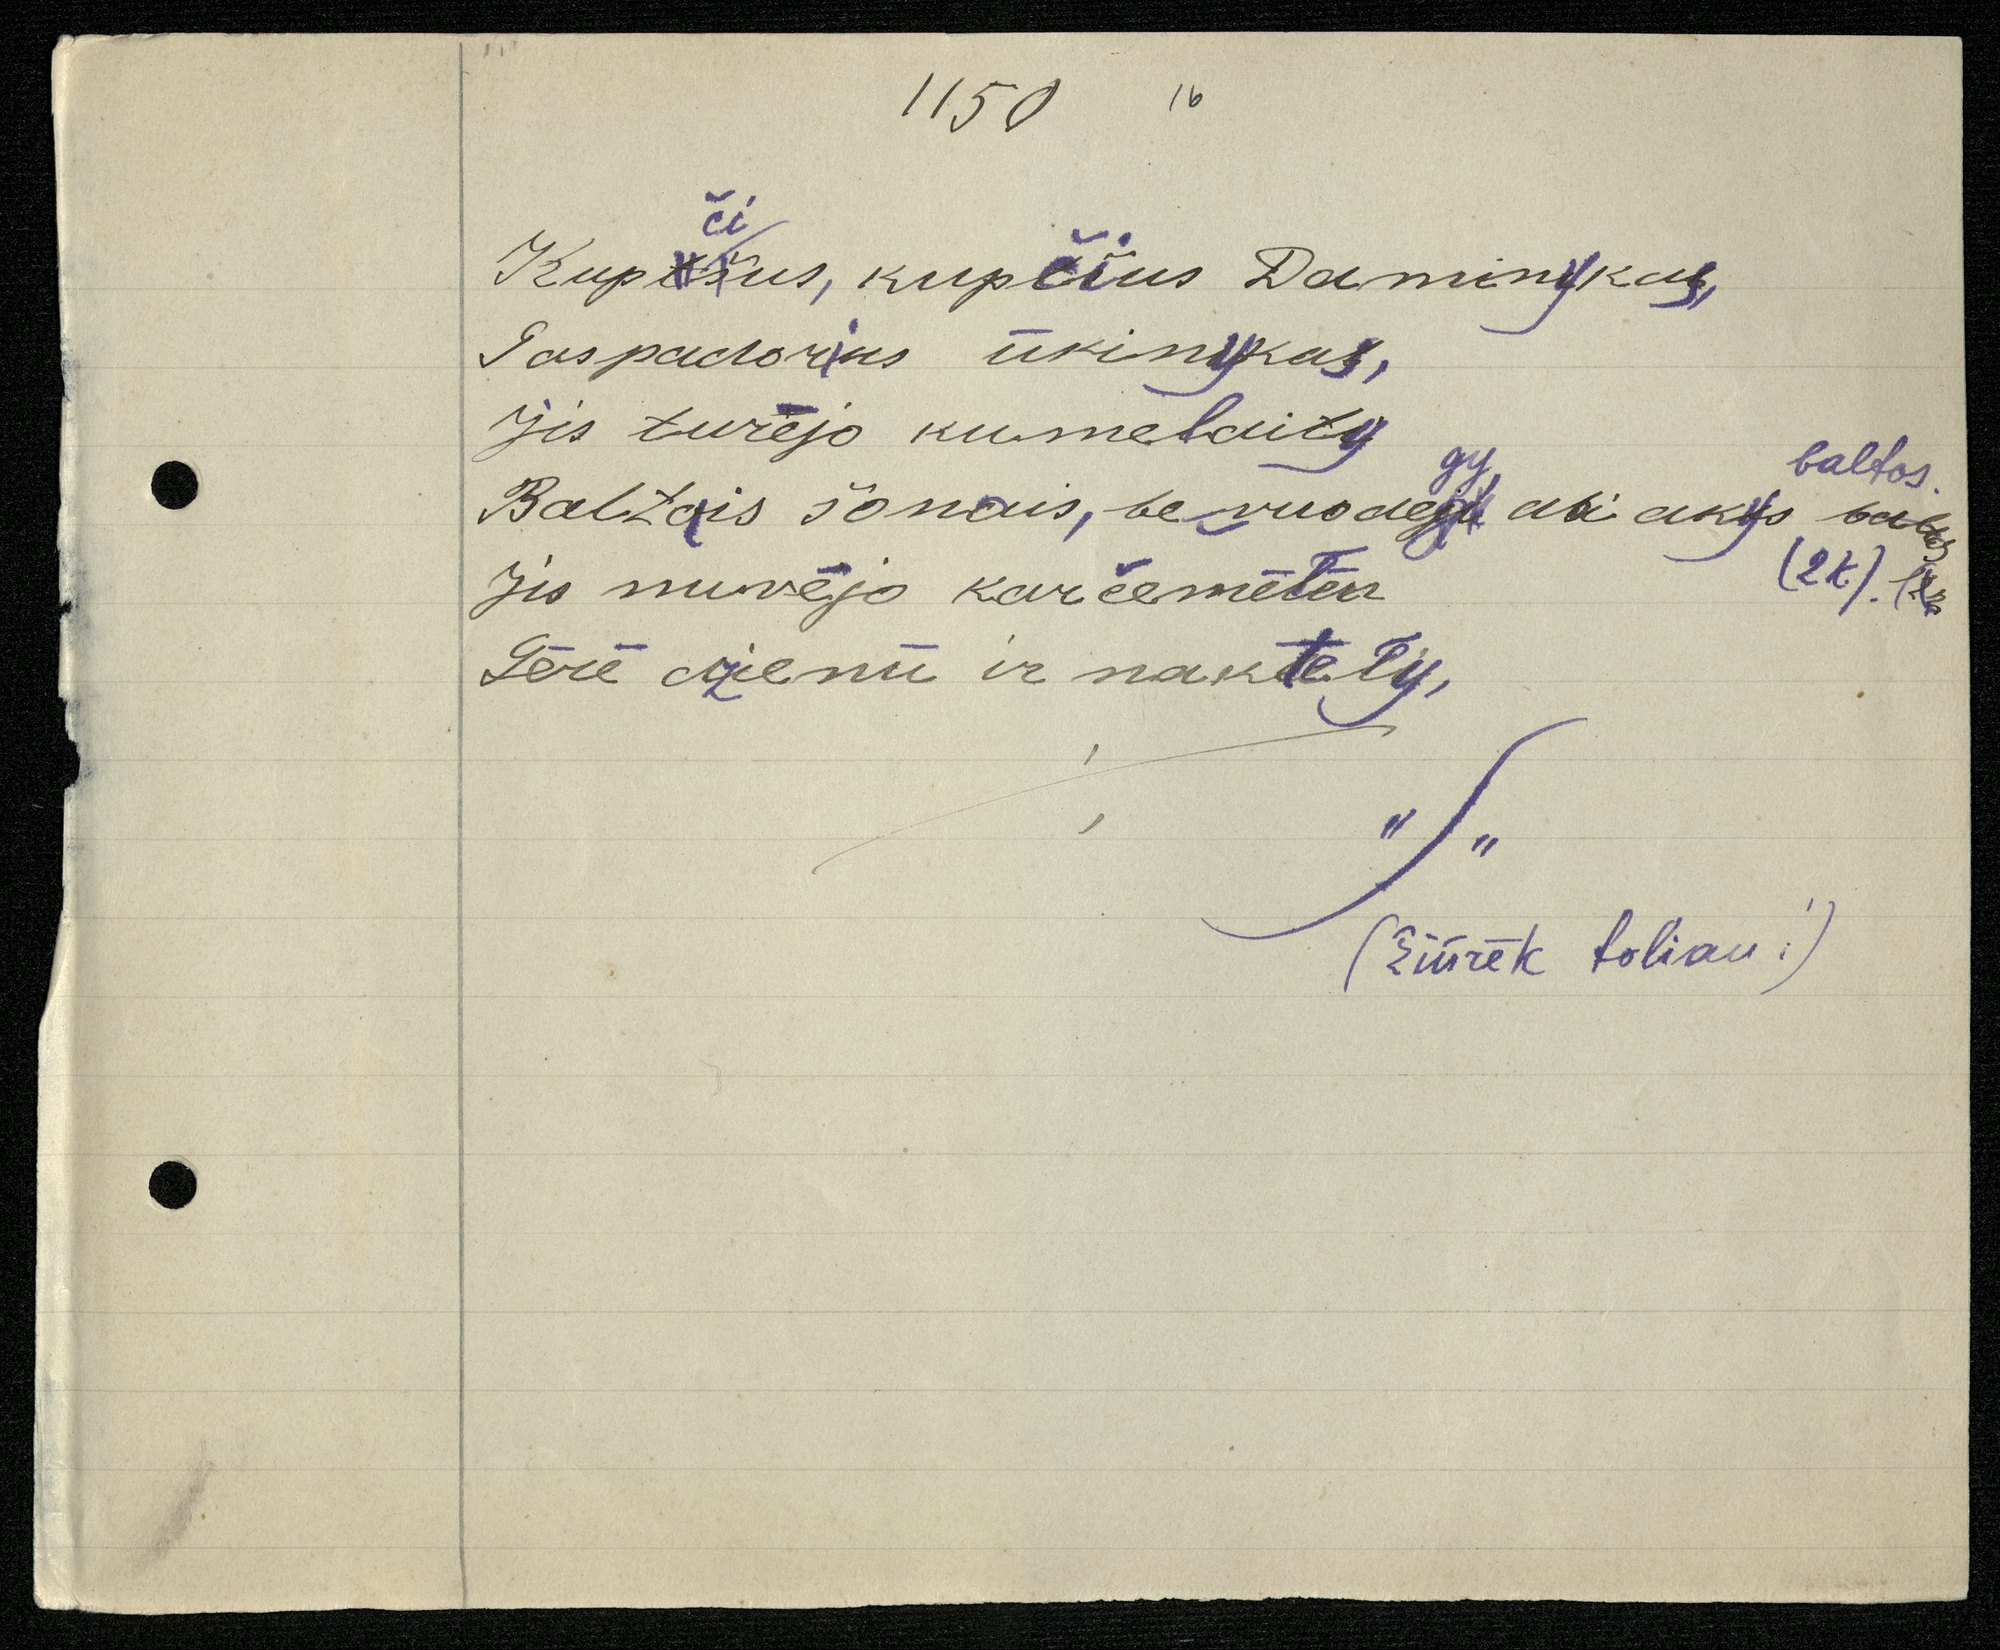 1150 16
Kupčius, kupčius Daminykas,
Gaspadorius ūkinykas,
Jis turējo kumelaity
Baltais šonais, be vuodegy, abi akys baltos.
(2k).
Jis nuvējo karčemēlēn
Gērē dienū ir naktely,
"
"
(Žiūrēk toliau!)